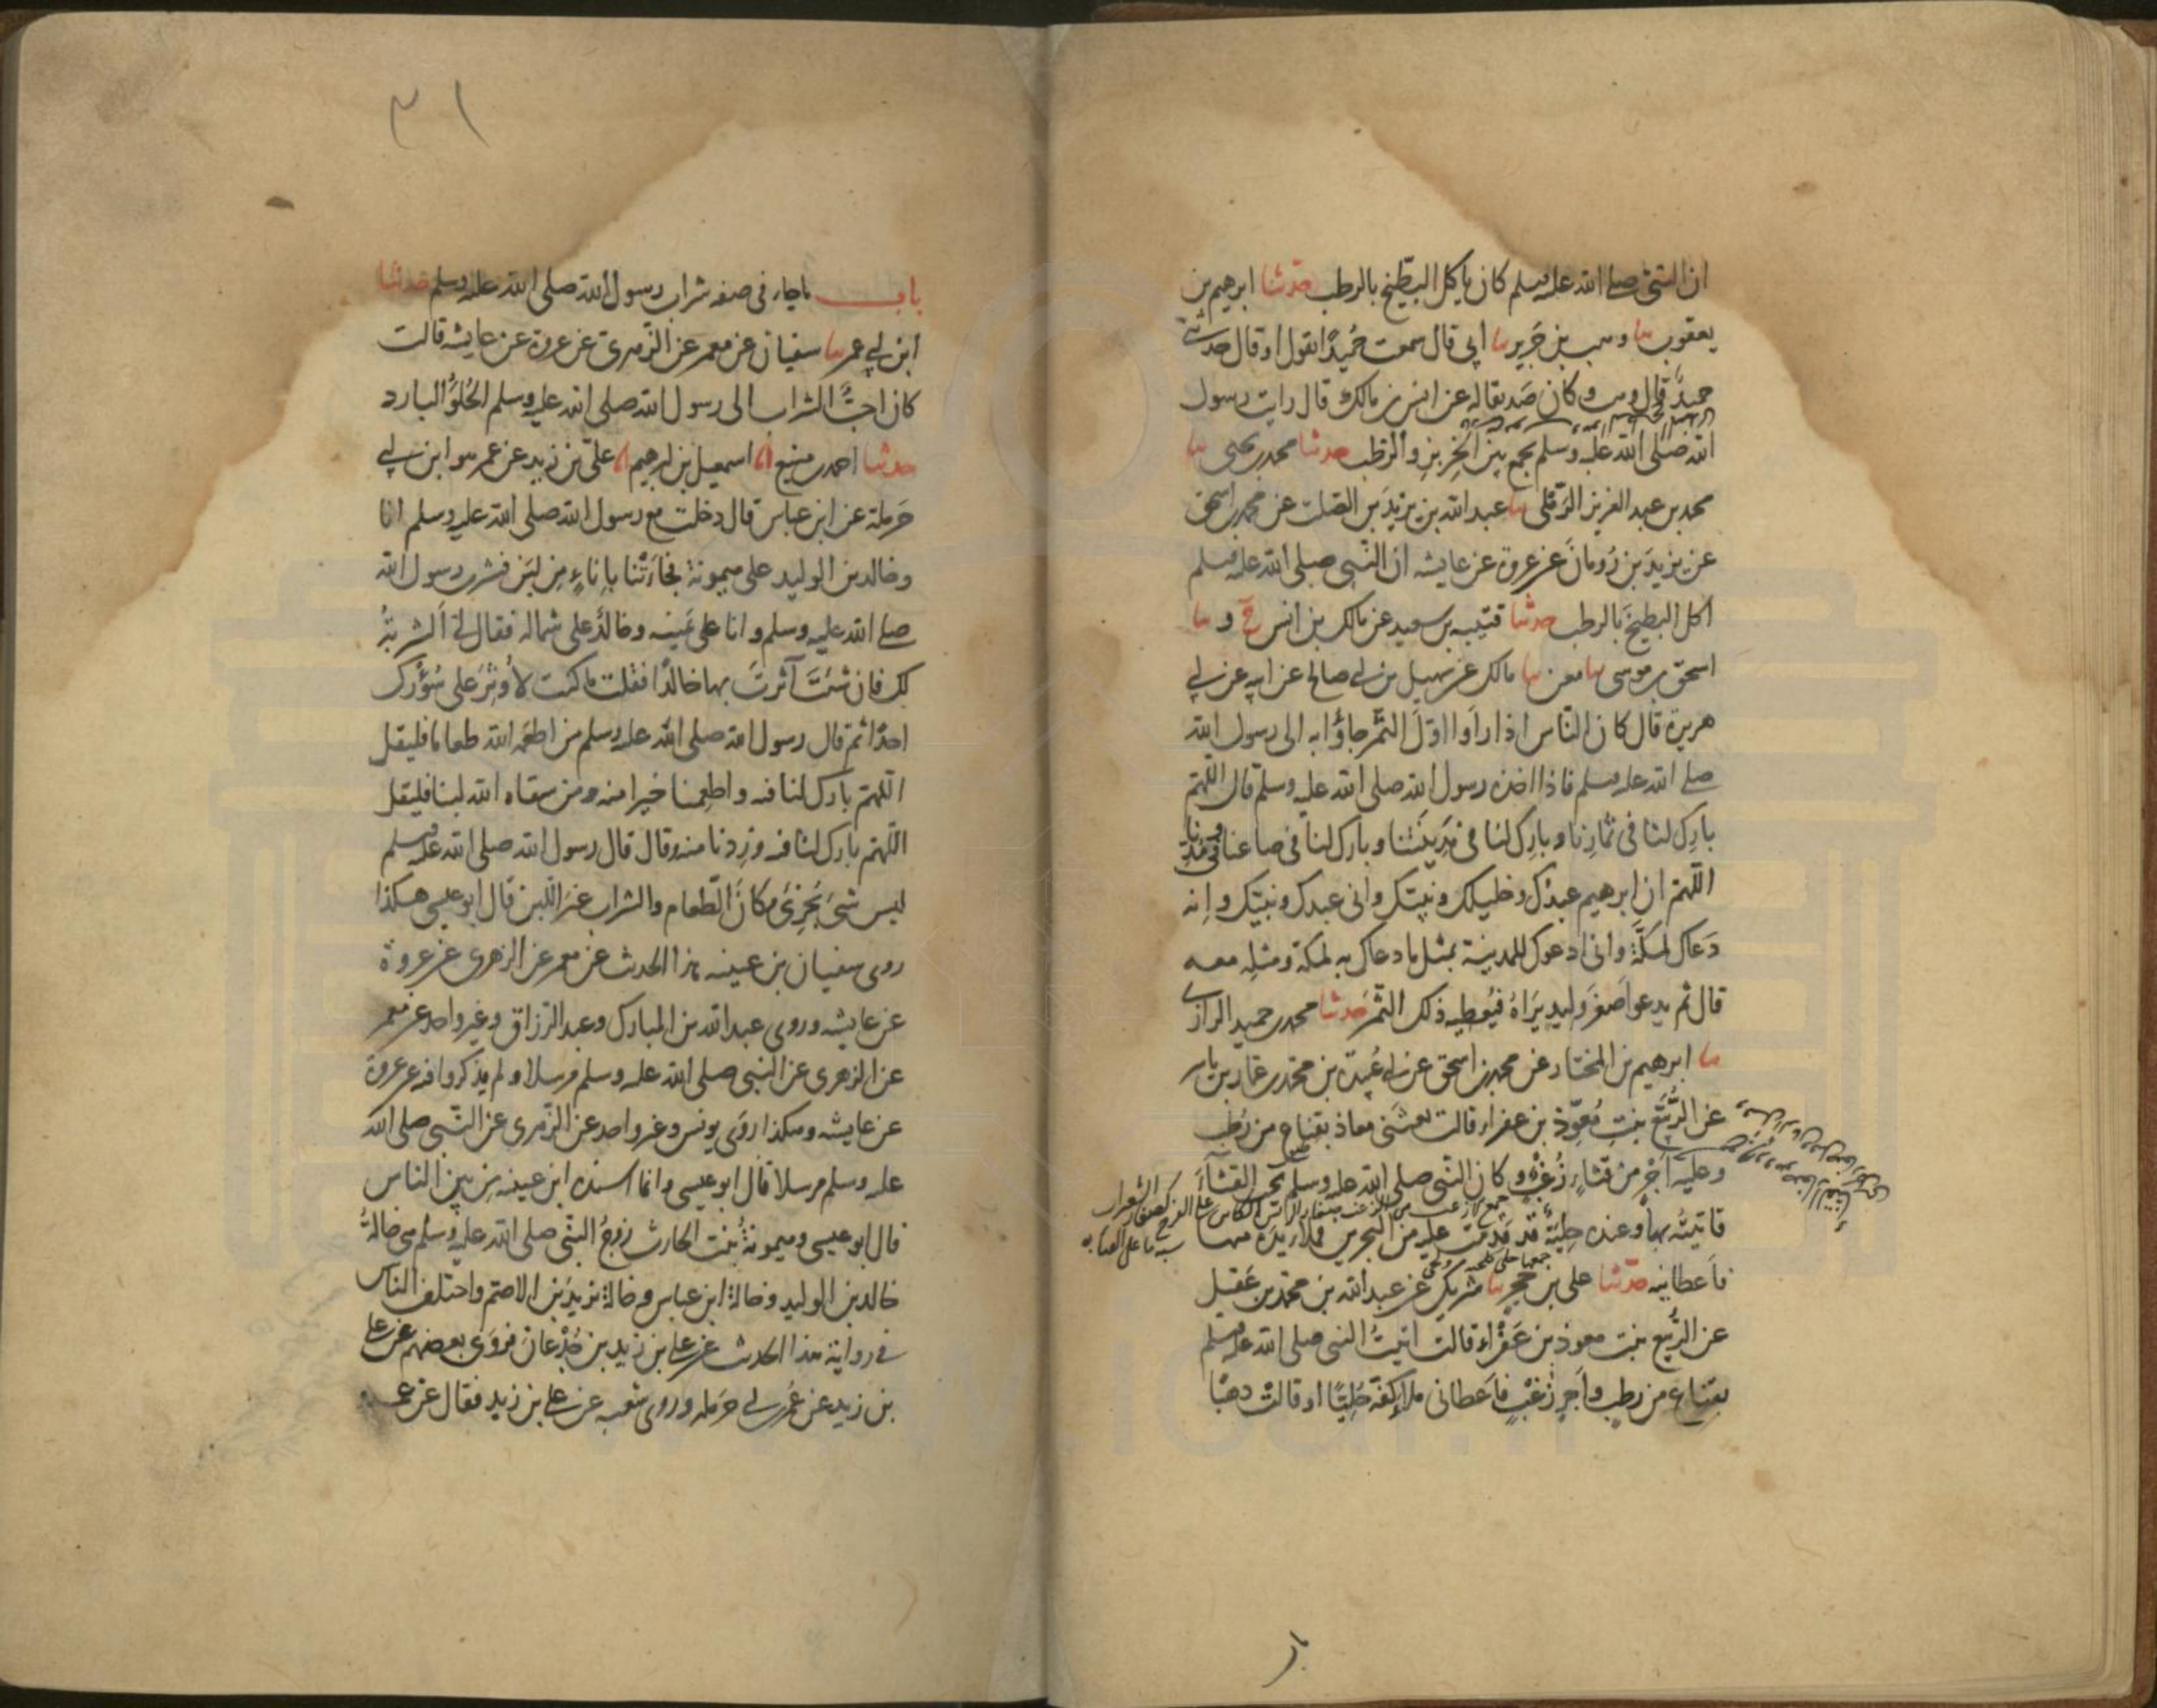 ان النبى صلى الله عليه وسلم كان ياكل البطيخ بالرطب حدثنا ابرهيم بن
يعقوب ثنا وهب بن جرير ثنا ابى قال سمعت حميدا يقول او قال حدثنى
حميد قال وهب وكان صديقا له عن انس بن مالك قال رايت رسول
الله صلى الله عليه وسلم يجمع بين الخربز والرطب حدثنا محمد بن يحيى ثنا
محمد بن عبد العزيز الرملى ثنا عبد الله بن يزيد بن الصلت عن محمد بن اسحق
عن يزيد بن رومان عن عروة عن عايشه ان النبى صلى الله عليه وسلم
اكل البطيخ بالرطب حدثنا قتيبه بن سعيد عن مالك بن انس ح و ثنا
اسحق بن موسى ثنا معن ثنا مالك عن سهيل بن ابى صالح عن ابيه عن ابى
هريرة قال كان الناس اذا راوا اول الثمر جاؤا به الى رسول الله
صلى الله عليه وسلم فاذا اخذه رسول الله صلى الله عليه وسلم قال اللهم
بارك لنا فى ثمارنا وبارك لنا فى مدينتنا وبارك لنا فى صاعنا وفى مدنا
اللهم ان ابرهيم عبدك وخليلك ونبيك وانى عبدك ونبيك وانه
دعاك لمكة وانى ادعوك للمدينة بمثل ما دعاك به لمكة ومثله معه
قال ثم يدعو اصغر وليد يراه فيعطيه ذلك الثمر حدثنا محمد بن حميد الرازى
ثنا ابرهيم بن المختار عن محمد بن اسحق عن ابى عبيدة بن محمد بن عمار بن ياسر
عن الربيع بنت معوذ بن عفراء قالت بعثنى معاذ بقناع من رطب
وعليه اجر من قثاء زغب وكان النبى صلى الله عليه وسلم يحب القثاء
فاتيته بها وعنده حلية قد قدمت عليه من البحرين فملا يده منها
فاعطانيه حدثنا على بن حجر ثنا شريك عن عبد الله بن محمد بن عقيل
عن الربيع بنت معوذ بن عفراء قالت اتيت النبى صلى الله عليه وسلم
بقناع من رطب واجر زغب فاعطانى ملا كفه حليا او قالت ذهبا
٣١
باب ماجاء فى صفه شراب رسول الله صلى الله عليه وسلم حدثنا
ابن ابى عمر ثنا سفيان عن معمر عن الزهرى عن عروة عن عايشه قالت
كان احب الشراب الى رسول الله صلى الله عليه وسلم الحلو البارد
حدثنا احمد بن منيع انا اسمعيل بن ابرهيم انا على بن زيد عن عمر هو ابن ابى
حرملة عن ابن عباس قال دخلت مع رسول الله صلى الله عليه وسلم انا
وخالد بن الوليد على ميمونة فجاءتنا باناء من لبن فشرب رسول الله
صلى الله عليه وسلم وانا على يمينه وخالد على شماله فقال لى الشربة
لك فان شئت آثرت بها خالدا فقلت ما كنت لاوثر على سؤرك
احدا ثم قال رسول الله صلى الله عليه وسلم من اطعمه الله طعاما فليقل
اللهم بارك لنا فيه واطعمنا خيرا منه ومن سقاه الله لبنا فليقل
اللهم بارك لنا فيه وزدنا منه وقال قال رسول الله صلى الله عليه وسلم
ليس شىء يجزئ مكان الطعام والشراب غير اللبن قال ابو عيسى هكذا
روى سفيان بن عيينه هذا الحديث عن معمر عن الزهرى عن عروة
عن عايشه وروى عبد الله بن المبارك وعبد الرزاق وغير واحد عن معمر
عن الزهرى عن النبى صلى الله عليه وسلم مرسلا ولم يذكروا فيه عن عروة
عن عايشه وهكذا روى يونس وغير واحد عن الزهرى عن النبى صلى الله
عليه وسلم مرسلا قال ابو عيسى وانما اسنده ابن عيينه من بين الناس
قال ابو عيسى وميمونة بنت الحارث زوج النبى صلى الله عليه وسلم هى خالة
خالد بن الوليد وخالة ابن عباس وخالة يزيد بن الاصم واختلف الناس
فى رواية هذا الحديث عن على بن زيد بن جدعان فروى بعضهم عن على
بن زيد عن عمر بن ابى حرمله وروى شعبه عن على بن زيد فقال عن عمر